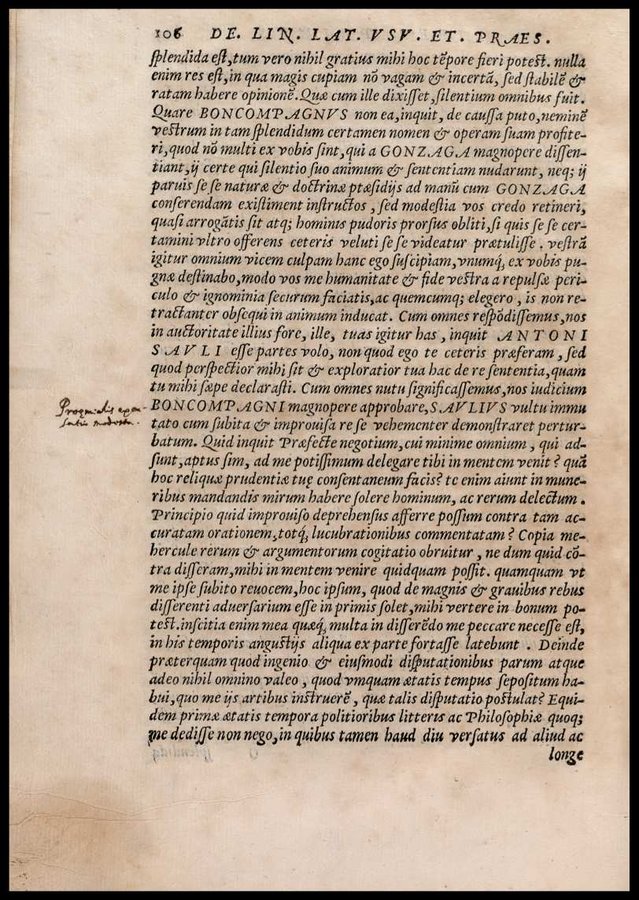 106 DE. LIN. LAT. VSV. ET. PRAES.
splendida est, tum vero nihil gratius mihi hoc tēpore fieri potest. nulla
enim res est, in qua magis cupiam nō vagam & incertā, sed stabilē &
ratam habere opinionē. Quæ cum ille dixisset, silentium omnibus fuit.
Quare BONCOMPAGNVS non ea, inquit, de caussa puto, neminē
vestrum in tam splendidum certamen nomen & operam suam profite-
ri, quod nō multi ex vobis sint, qui a GONZAGA magnopere dissen-
tiant, ij certe qui silentio suo animum & sententiam nudarunt, neq; ij
paruis se se naturæ & doctrinæ ptæsidijs ad manū cum GONZAGA
conserendam existiment instructos, sed modestia vos credo retineri,
quasi arrogātis sit atq; hominis pudoris prorsus obliti, si quis se se cer-
tamini vltro offerens ceteris veluti se se videatur prætulisse. vestrā
igitur omnium vicem culpam hanc ego suscipiam, vnumq́; ex vobis pu-
gnæ destinabo, modo vos me humanitate & fide vestra a repulsæ peri-
culo & ignominia securum faciatis, ac quemcumq; elegero, is non re-
tractanter obsequi in animum inducat. Cum omnes respōdissemus, nos
in auctoritate illius fore, ille, tuas igitur has, inquit ANTONI
SAVLI esse partes volo, non quod ego te ceteris præferam, sed
quod perspectior mihi sit & exploratior tua hac de re sententia, quam
tu mihi sæpe declarasti. Cum omnes nutu significassemus, nos iudicium
BONCOMPAGNI magnopere approbare, SAVLIVS vultu immu
tato cum subita & improuisa re se vehementer demonstraret pertur-
batum. Quid inquit Præfecte negotium, cui minime omnium, qui ad-
sunt, aptus sim, ad me potissimum delegare tibi in mentem venit? quā
hoc reliquæ prudentiæ tuę consentaneum facis? te enim aiunt in mune-
ribus mandandis mirum habere solere hominum, ac rerum delectum.
Principio quid improuiso deprehensus afferre possum contra tam ac-
curatam orationem, totq́; lucubrationibus commentatam? Copia me-
hercule rerum & argumentorum cogitatio obruitur, ne dum quid cō-
tra disseram, mihi in mentem venire quidquam possit. quamquam vt
me ipse subito reuocem, hoc ipsum, quod de magnis & grauibus rebus
disserenti aduersarium esse in primis solet, mihi vertere in bonum po-
test. inscitia enim mea quæq́; multa in disserēdo me peccare necesse est,
in his temporis angustijs aliqua ex parte fortasse latebunt. Deinde
præterquam quod ingenio & eiusmodi disputationibus parum atque
adeo nihil omnino valeo, quod vmquam ætatis tempus sepositum ha-
bui, quo me ijs artibus instruerē, quæ talis disputatio postulat? Equi-
dem primæ ætatis tempora politioribus litteris ac Philosophiæ quoq;
me dedisse non nego, in quibus tamen haud diu versatus ad aliud ac
longe